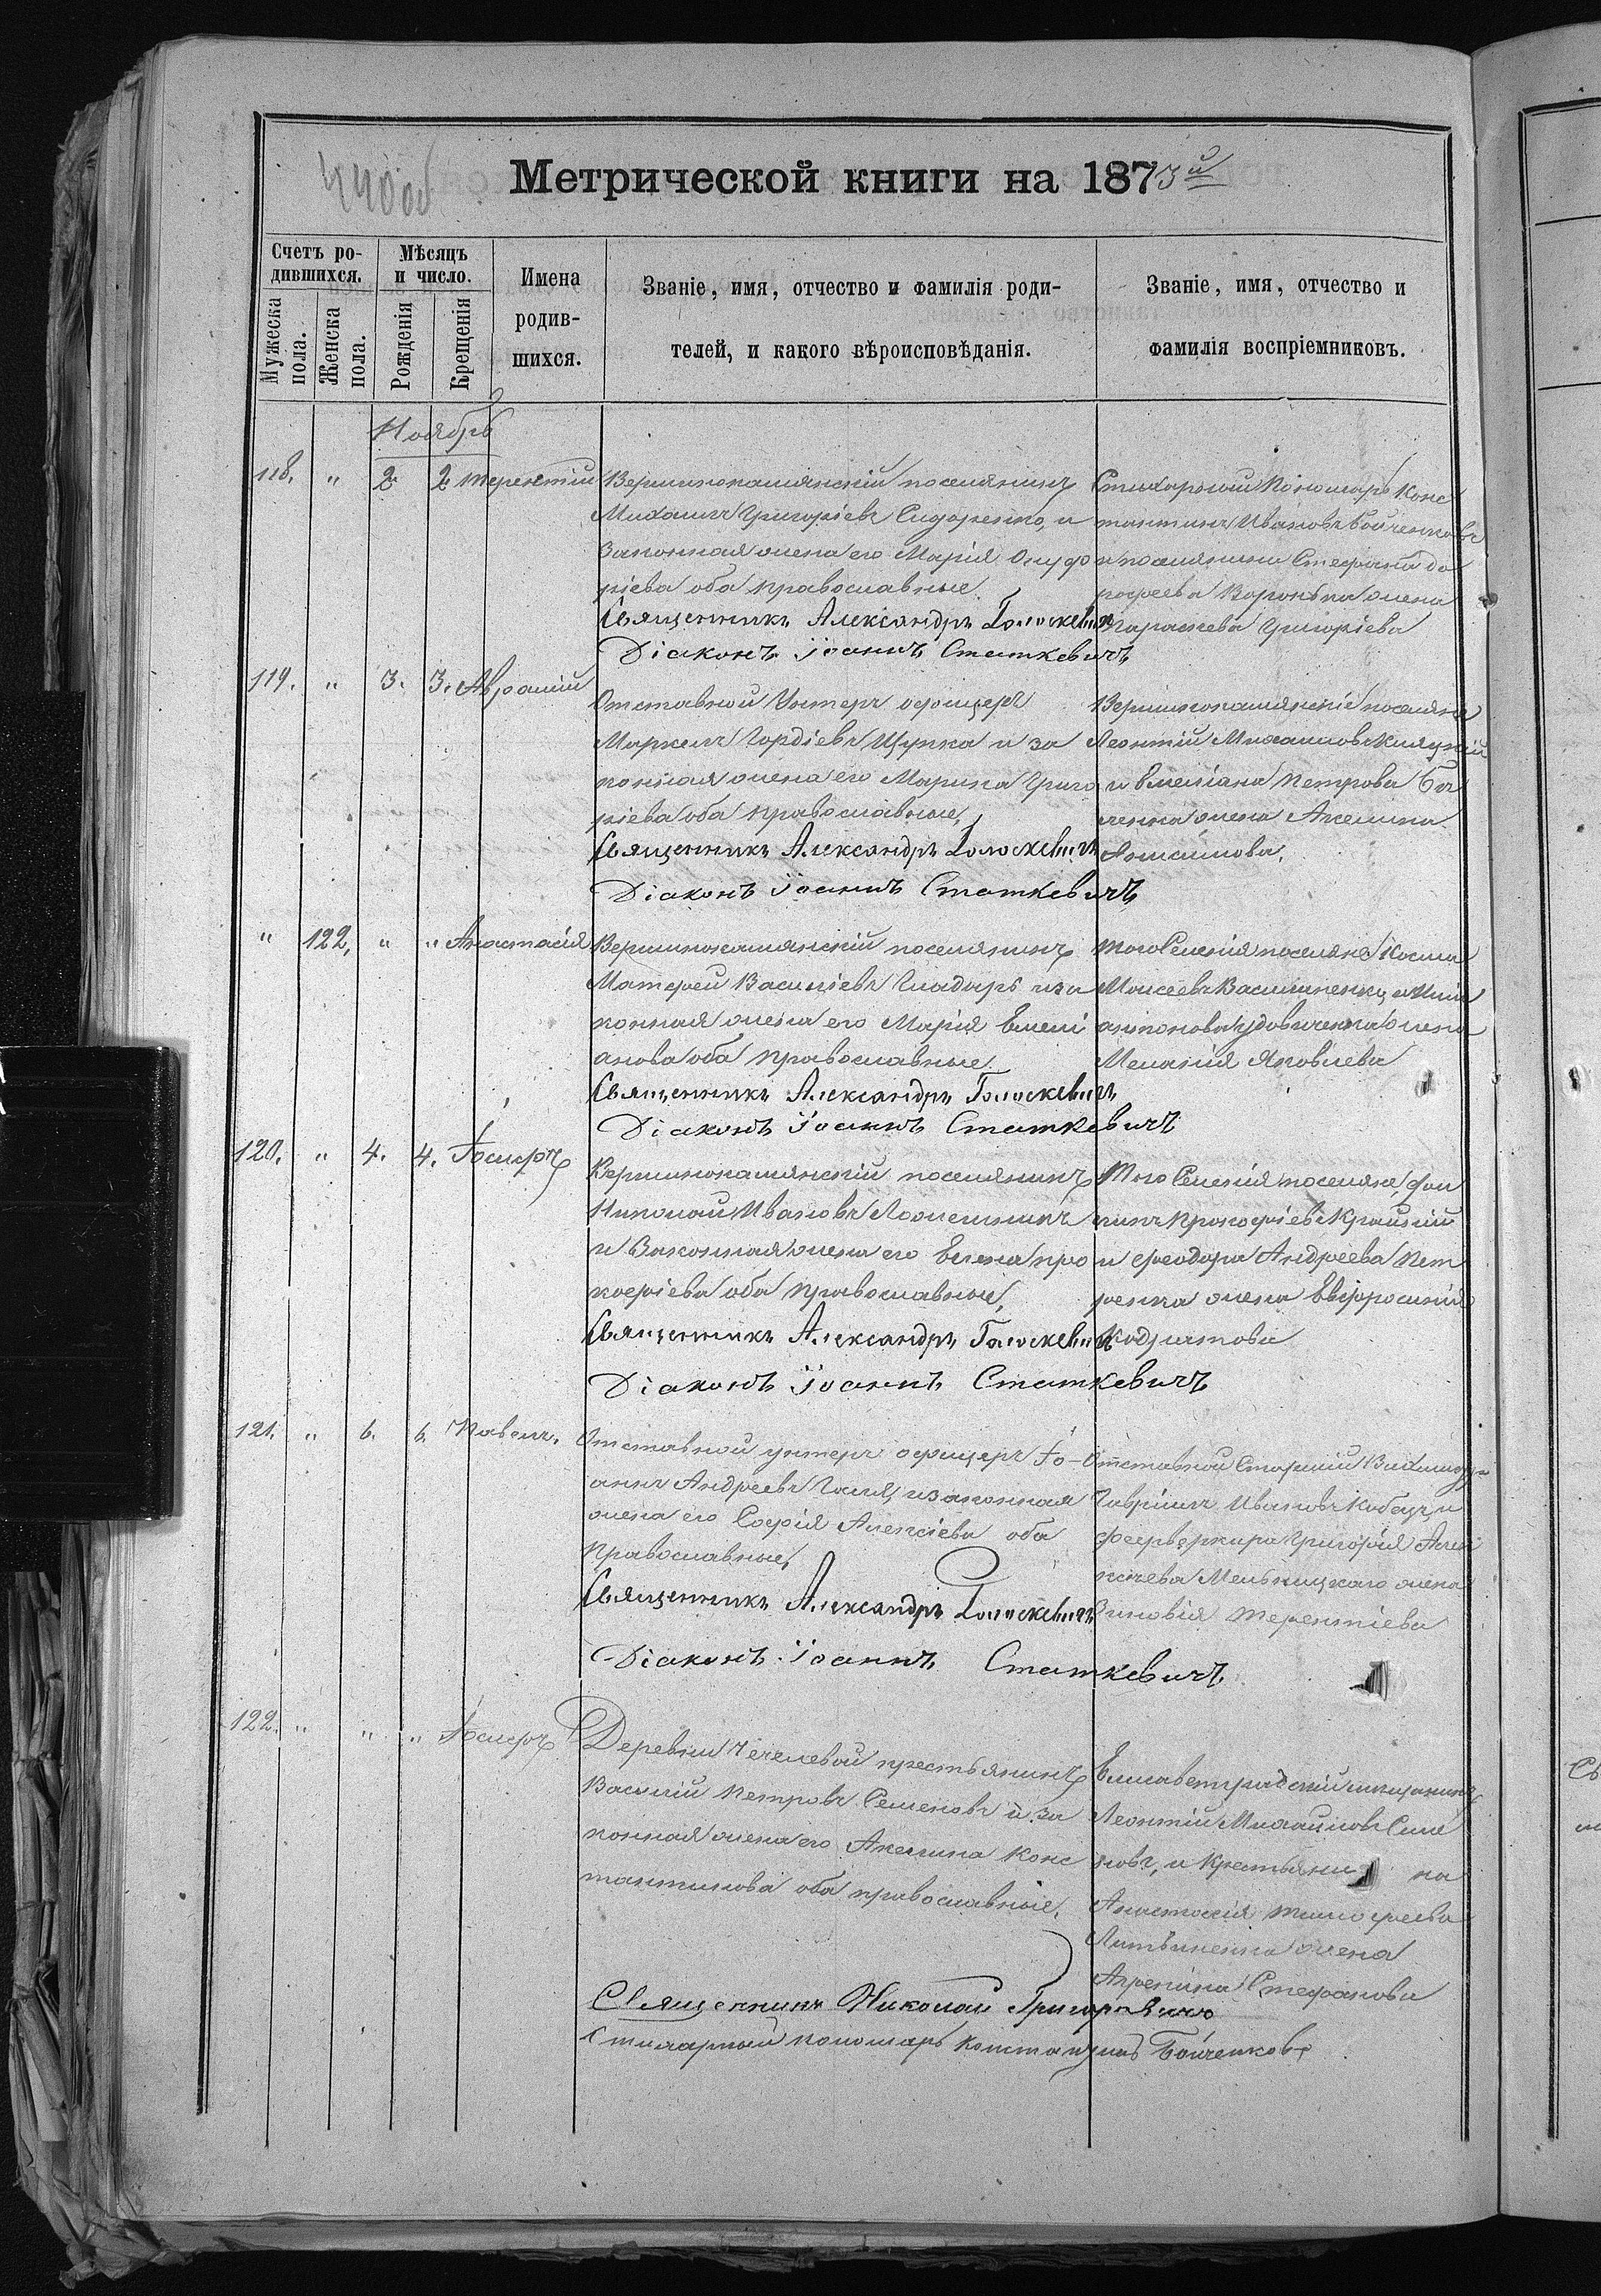 Метрической книги на 1873й
Счетъ ро-
дившихся.
Мужеска пола.
Женска пола.
Мѣсяцъ
и число.
Рожденія
Крещенія
Имена
родив-
шихся.
Званіе, имя, отчество и фамилія роди-
телей, и какого вѣроисповѣданія.
Званіе, имя, отчество и
фамилія воспріемниковъ.
Ноябрь
118. " 2. 2. Терентій
Вершинокамянскій поселянинъ
Михаилъ Григоріевъ Сидоренко, и
Законная жена его Марія Онуф
ріева оба православные.
Священникъ Александръ Голоскевичъ
Діаконъ Іоаннъ Статкевичъ
Стихарный Пономарь Конс
тантинъ Ивановъ Бойченковъ
и поселянина Стефана до
рофеева Воронька жена
Параскева Григоріева
119. " 3. 3. Аврамій
Отставной Унтеръ офицеръ
Маркелъ Гордіевъ Щупка и за
конная жена его Марина Григо
ріева оба православные,
Священникъ Александръ Голоскевичъ
Діаконъ Іоаннъ Статкевичъ
Вершинокамянскіе поселяне
Леонтій Михаиловъ
и Емеліана Петрова
ченка жена Акелина
" 122, " " Анастасія
Вершинокамянскій поселянинъ
Матфей Василіевъ Гладырь и за
конная жена его Марія Емелі
анова оба православные.
Священникъ Александръ Голоскевичъ
Діаконъ Іоаннъ Статкевичъ
Того Селенія поселяне Косма
Моисеевъ Василиненко,
антонова Удовиченка жена
Меланія Яковлева
120. " 4. 4. Іосифъ
Вершинокамянскій поселянинъ
Николай Ивановъ
и Законная жена его Елена про
кофіева оба православные,
Священникъ Александръ Голоскевичъ
Діаконъ Іоаннъ Статкевичъ
Того Селенія поселяне, фи
липъ Прокофіевъ
и феодора Андреева Пет
ренка жена Евфросинія
Кодратова
121. " 6. 6. Павелъ.
Отставной унтеръ офицеръ Іо-
аннъ Андреевъ Галя, и законная
жена его Софія Алексіева оба
православные,
Священникъ Александръ Голоскевичъ
Діаконъ Іоаннъ Статкевичъ
Отставной Старшій
Гавріилъ Ивановъ Кобецъ, и
фейерверкира Григорія Алек
сіева Мельницкаго жена
Зиновія Терентіева
122. " " " Іосифъ
Деревни Чечелевой крестьянинъ
Василій Петровъ Семеновъ и за
конная жена его Акелина Конс
тантинова оба православные.
Священникъ Николай Григоровичъ
Стихарный пономарь Константинъ Бойченковъ
Елисаветградскій мещанинъ
Леонтій Михайловъ Семе
новъ, и крестьяни на
Анастасія тимофеева
Литвиненка жена
Агрепина Стефанова